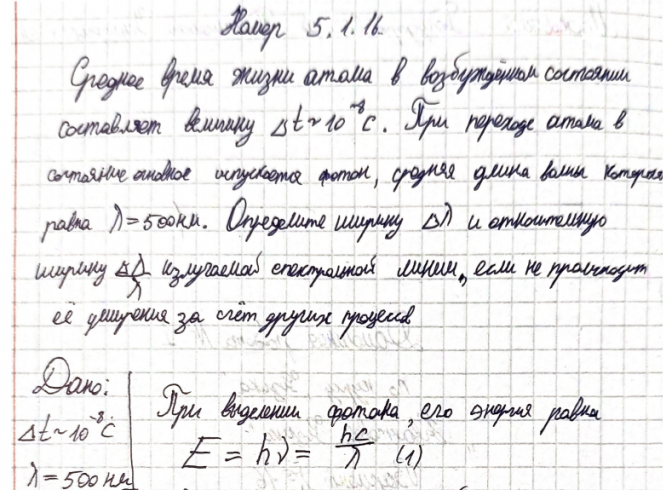 Номер 5.1.16
Среднее время жизни атома в возбуждённом состоянии
составляет величину Δt ~ 10⁻⁸ с. При переходе атома в
состояние основное испускается фотон, средняя длина волны которого
равна λ = 500 нм. Определите ширину Δλ и относительную
ширину Δλ/λ излучаемой спектральной линии, если не происходит
её уширения за счёт других процессов
Дано:
Δt ~ 10⁻⁸ с
λ = 500 нм
При выделении фотона, его энергия равна
E = hν = hc/λ (1)